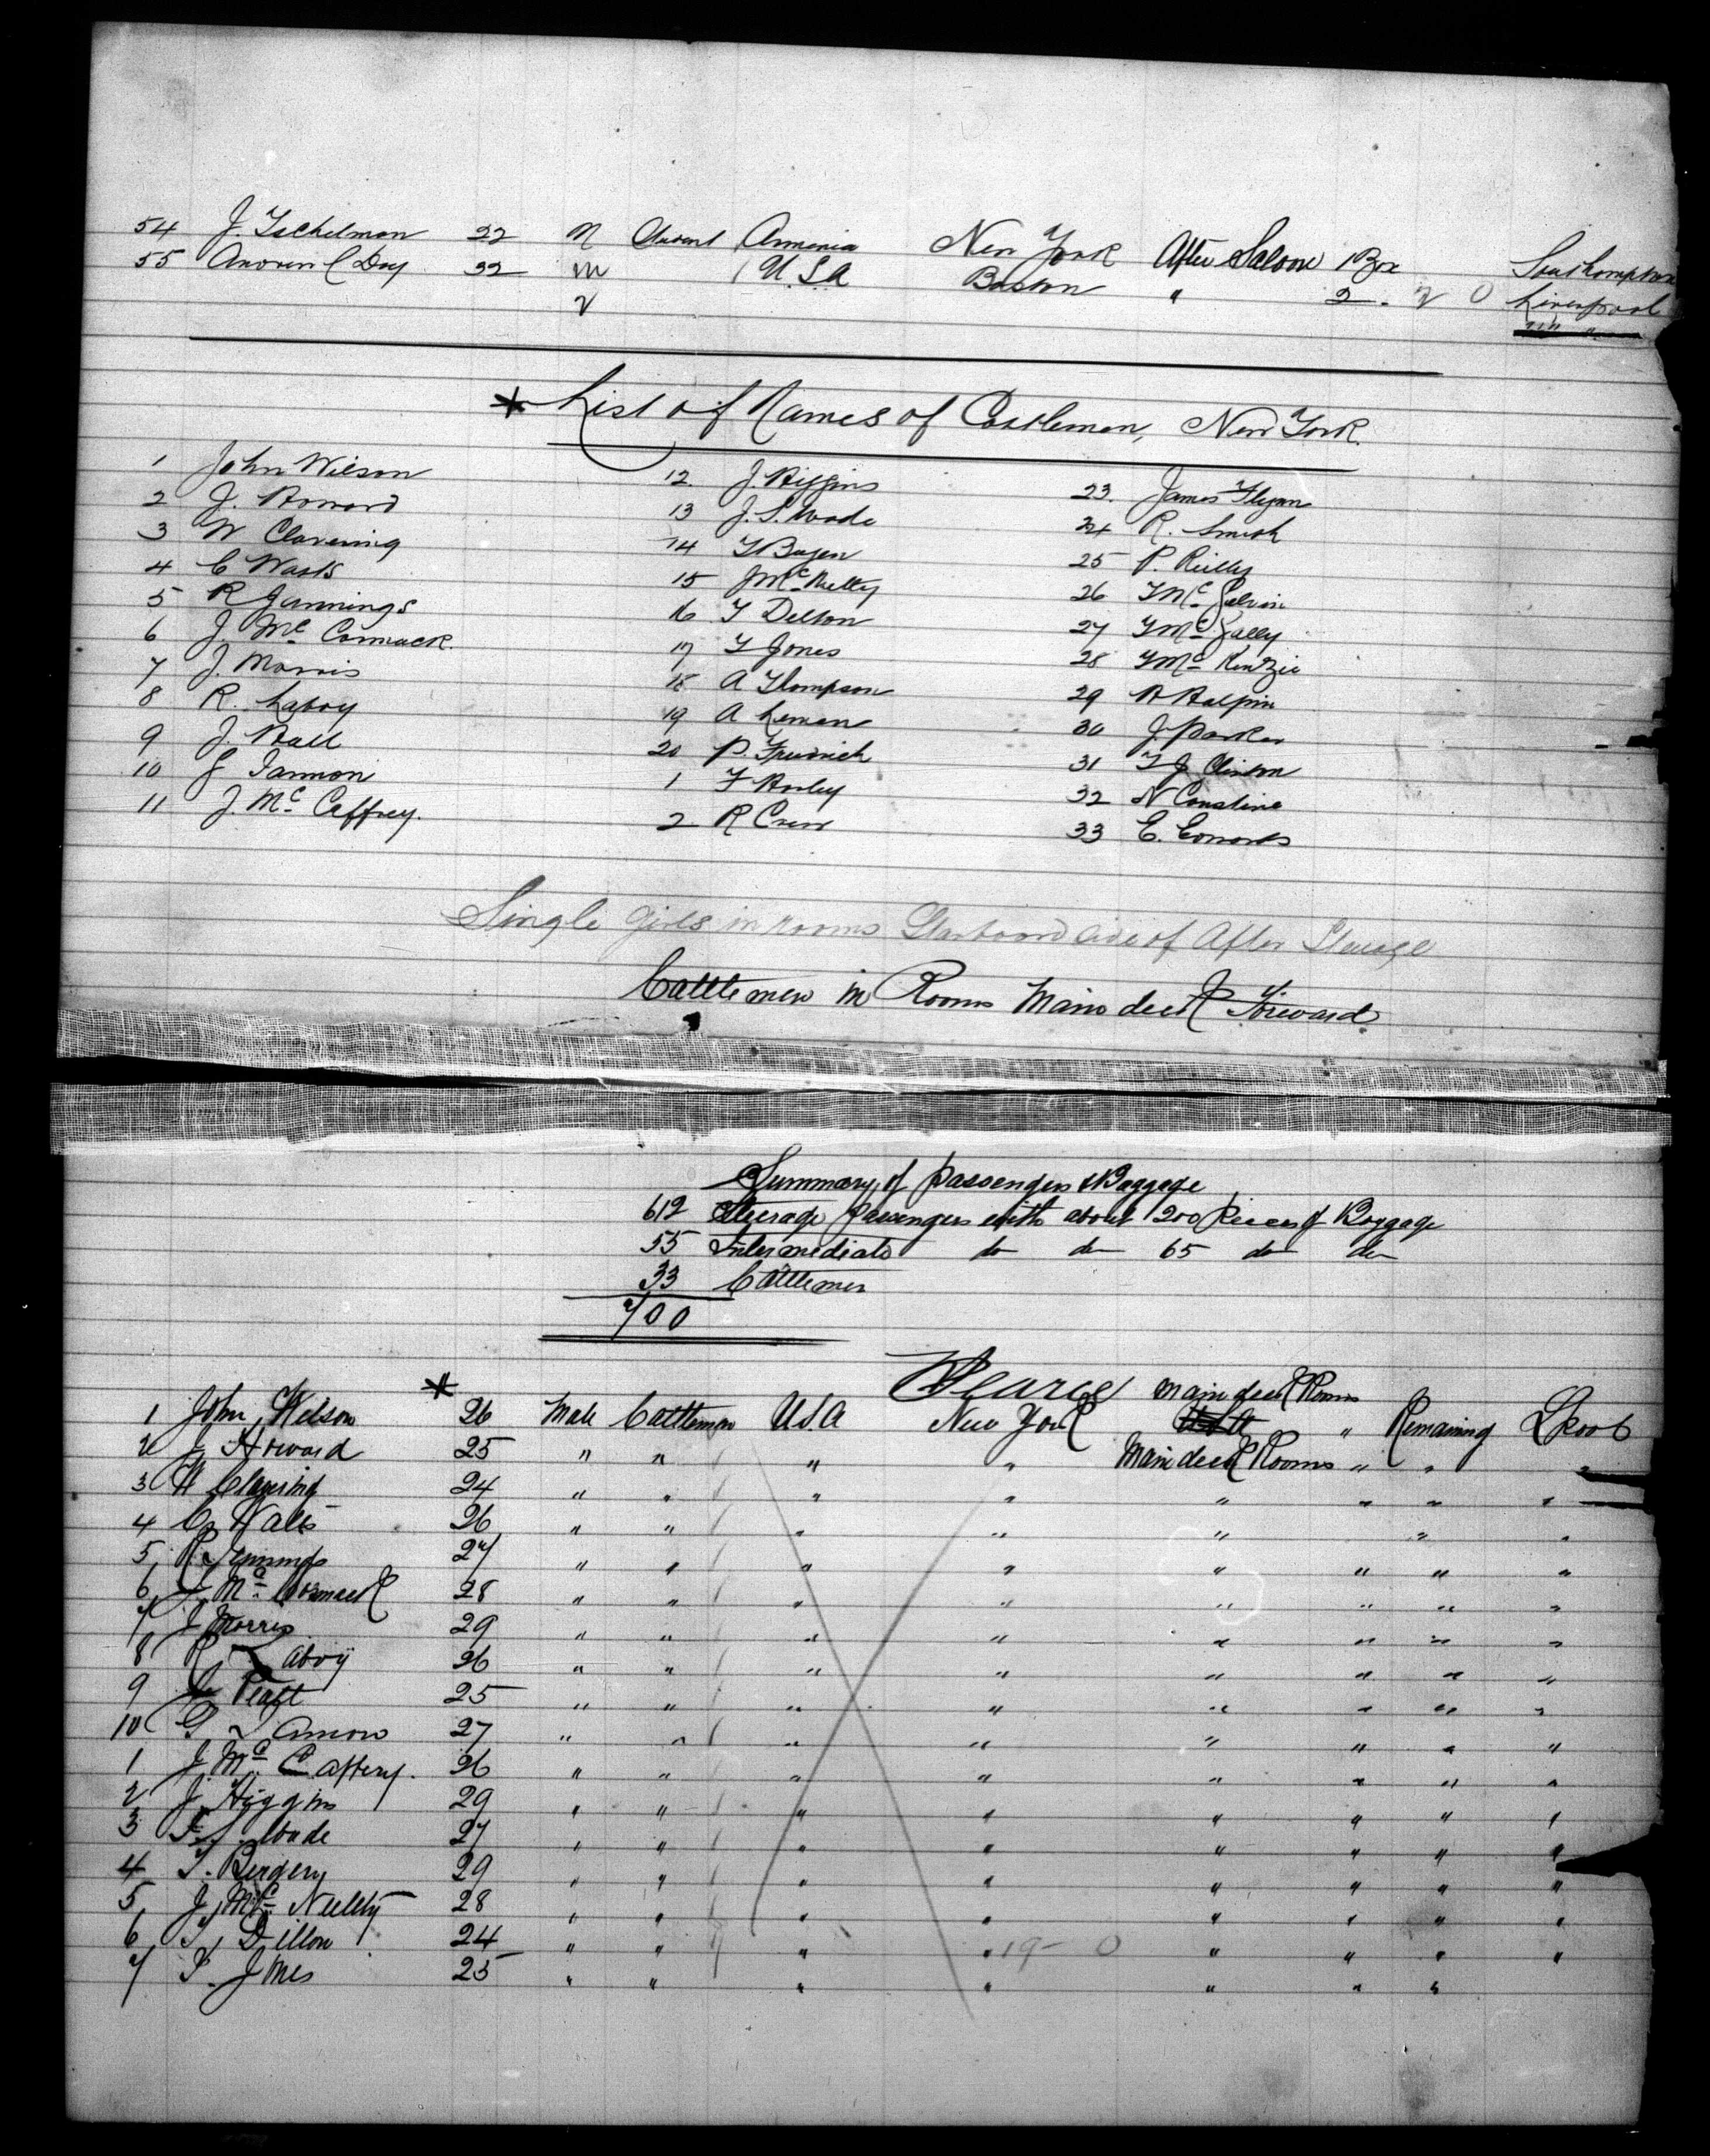 54 J. Tschelmon 22 M Student Armenia New York After Saloon 1 Box Southampton
55 Andrew C Day 32 M U.S.A Boston " 2 Liverpool
* List of Names of Cattlemen, New York.
1 John Wilson 12. J. Higgins 23. James Flynn
2 J. Howard 13 J. S. Wade 24 R. Smith
3 W Clavering 14 25 P. Reilly
4 C Watts 15 J Mc Nelty 26 T Mc
5 R Jennings 16 T Dillon 27 T Mc Gally
6 J. Mc Cormack. 17 T Jones 28 T Mc Kenzie
7 J. Morris 18 A Thompson 29 H Halpin
8 R. Laboy 19 A Leman 30 J. Parker
9 J. Hall 20 P. Fredrich 31 T J Clinton
10 G Iannon 1 F Hosley 32 N Constine
11 J. Mc Caffrey. 2 R Crew 33 E. Edwards
Single girls in rooms Starboard side of After Steerage
Cattlemen in Rooms Main deck Forward
Summary of Passengers & Baggage
612 Steerage Passengers with about 1200 Pieces of Baggage
55 Intermediate do do 65 do do
33 Cattlemen
700
Main deck Rooms
1 John Wilson * 26 Male Cattlemen U.S.A New York " Remaining Lpool
2 J Howard 25 " " " " Main deck Rooms " " "
3 W Clavering 24 " " " " " " " "
4 C. Watts 26 " " " " " " "
5 R Jennings 27 " " " " " " " "
6 J Mc Cormack 28 " " " " " " " "
7 J Morris 29 " " " " " " " "
8 R Laboy 26 " " " " " " " "
9 J. 25 " " " " " " " "
10 G 27 " " " " " " " "
1 J. Mc Caffery. 26 " " " " " " " "
2 J. Higgins 29 " " " " " " " "
3 Wade 27 " " " " " " " "
4 T. 29 " " " " " " " "
5 J Mc Neilty 28 " " " " " " " "
6 T. Dillon 24 " " " " 19 - 0 " " " "
7 T. Jones 25 " " " " " " "